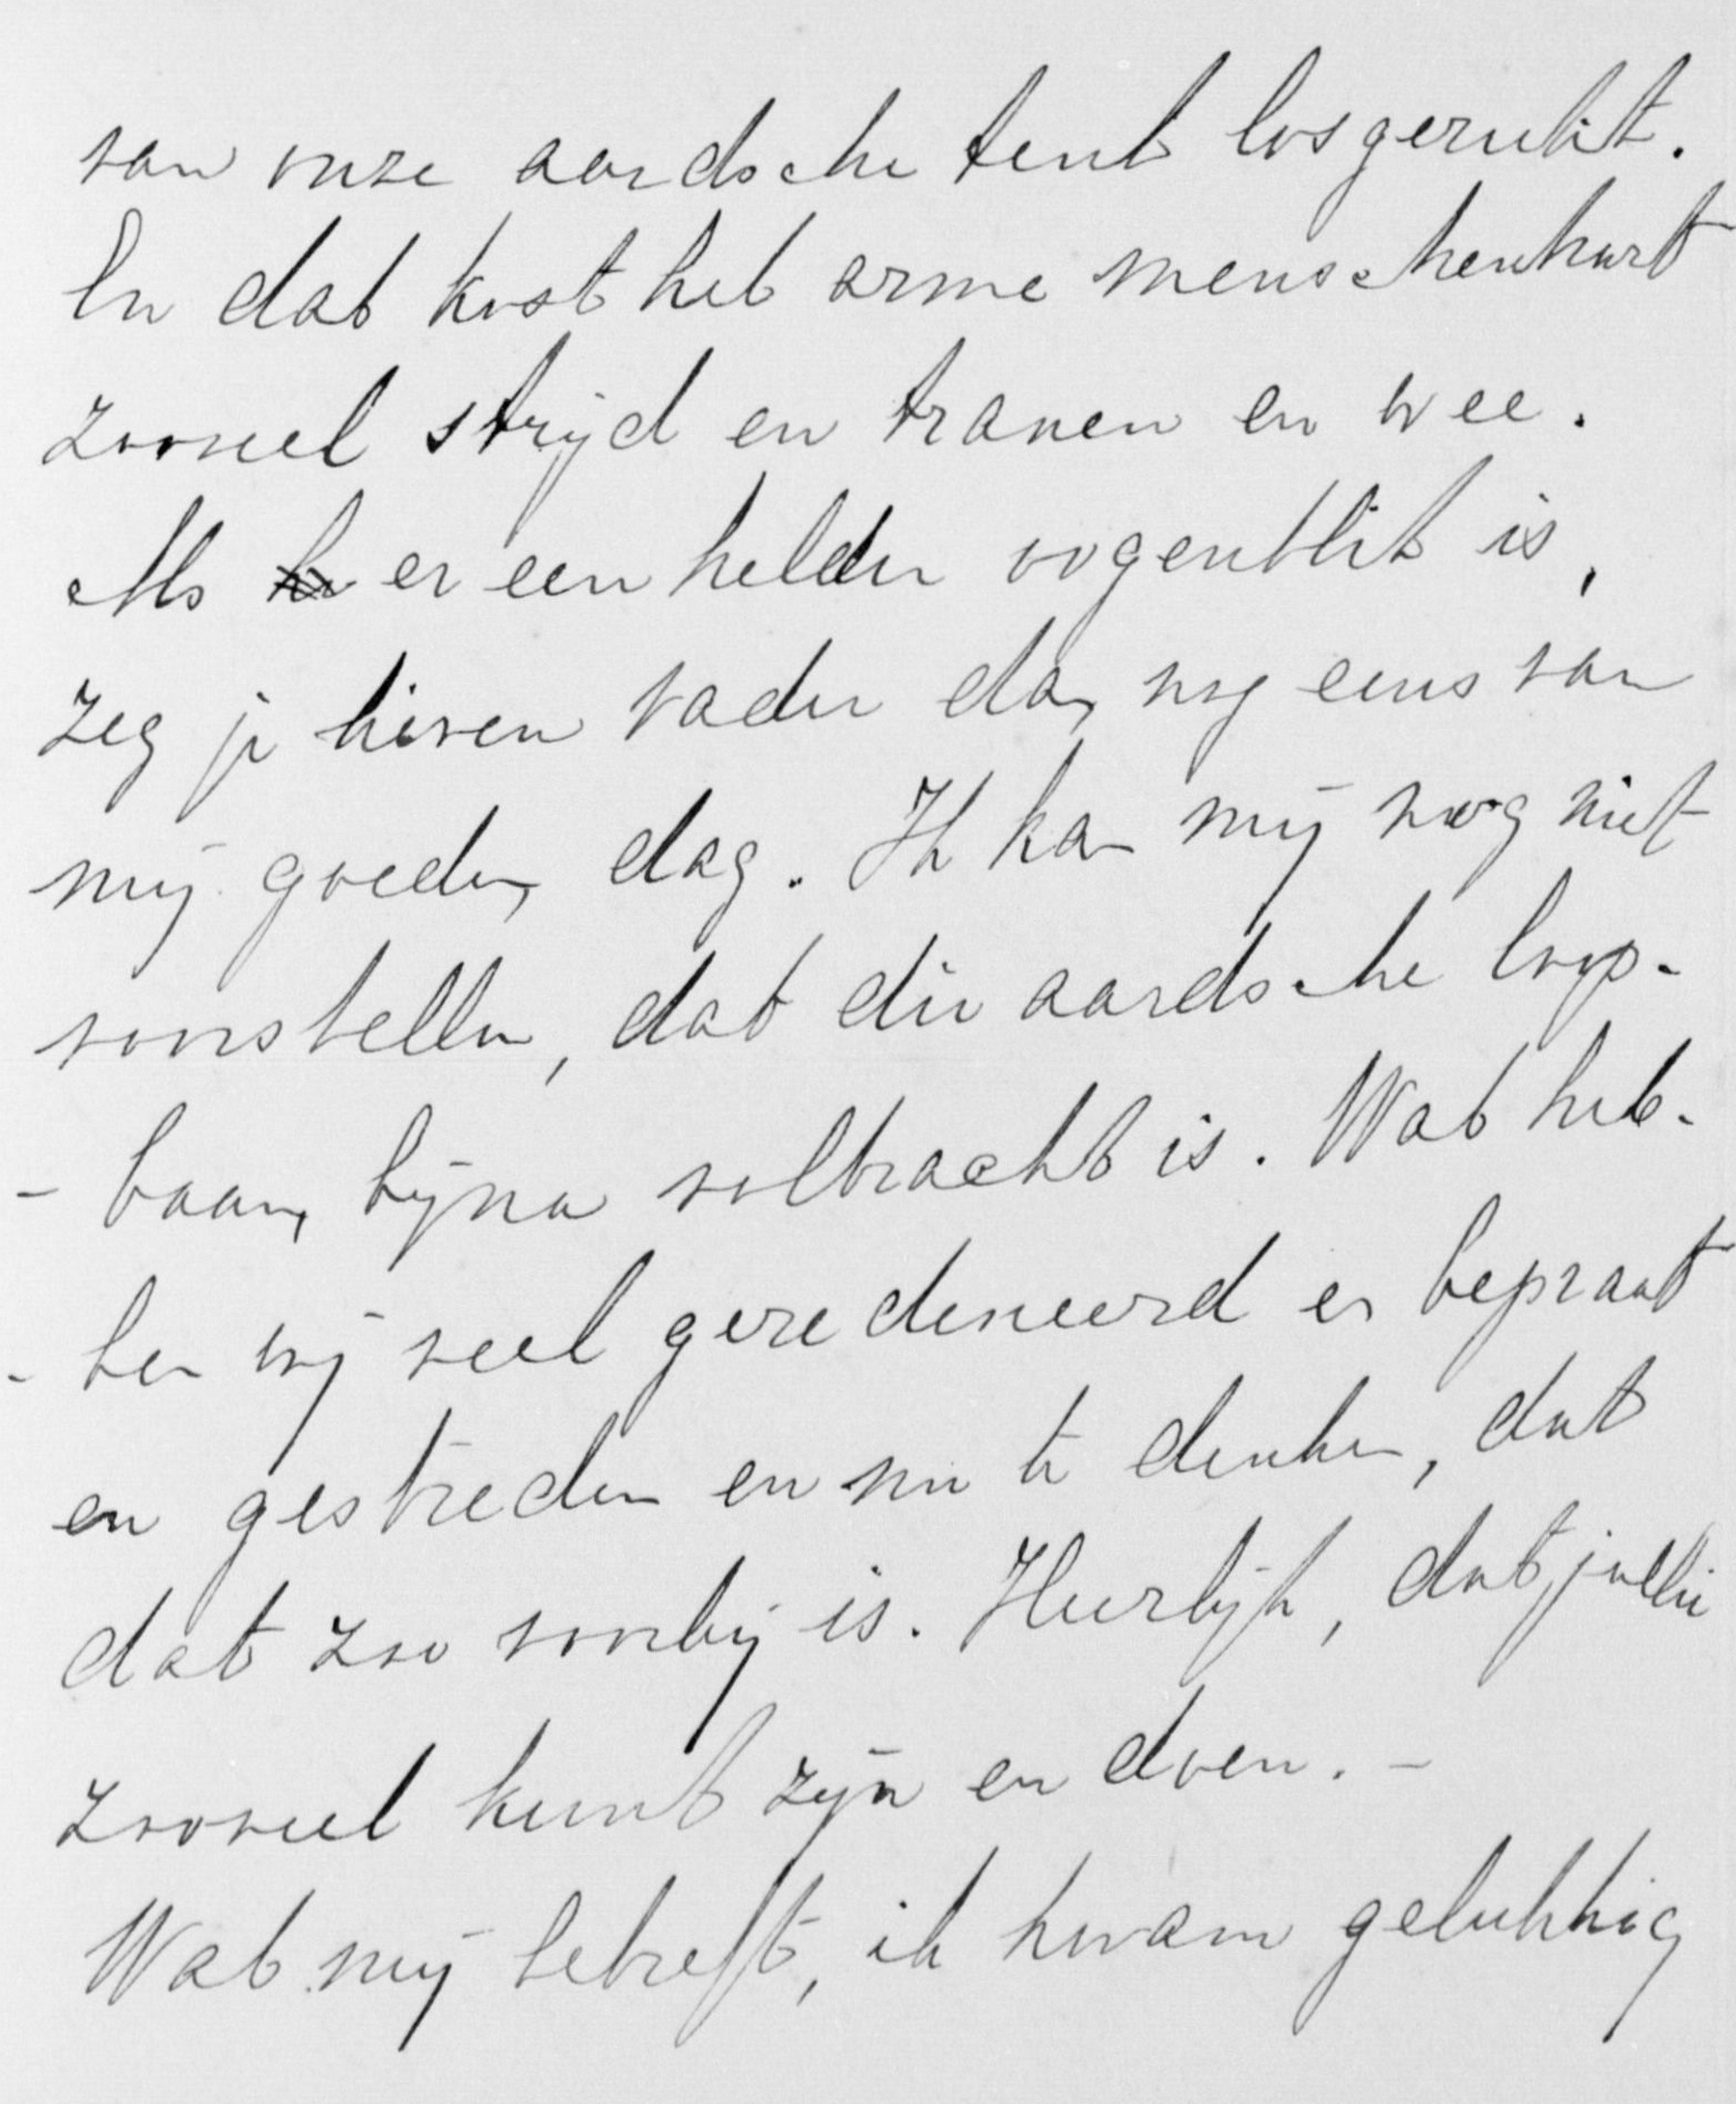 van onze aardsche tent losgerukt.
En dat kost het arme menschenhart
zooveel strijd en tranen en wee.
Als er een helder oogenblik is,
zeg je lieven vader dan nog eens van
mij goeden dag. Ik kan mij nog niet
voorstellen, dat die aardsche loop-
- baan bijna volbracht is. Wat heb-
- ben wij veel geredeneerd en bepraat
en gestreden en nu te denken, dat
dat zoo voorbij is. Heerlijk, dat jullie
zooveel kunt zijn en doen. -
Wat mij betreft, ik kwam gelukkig